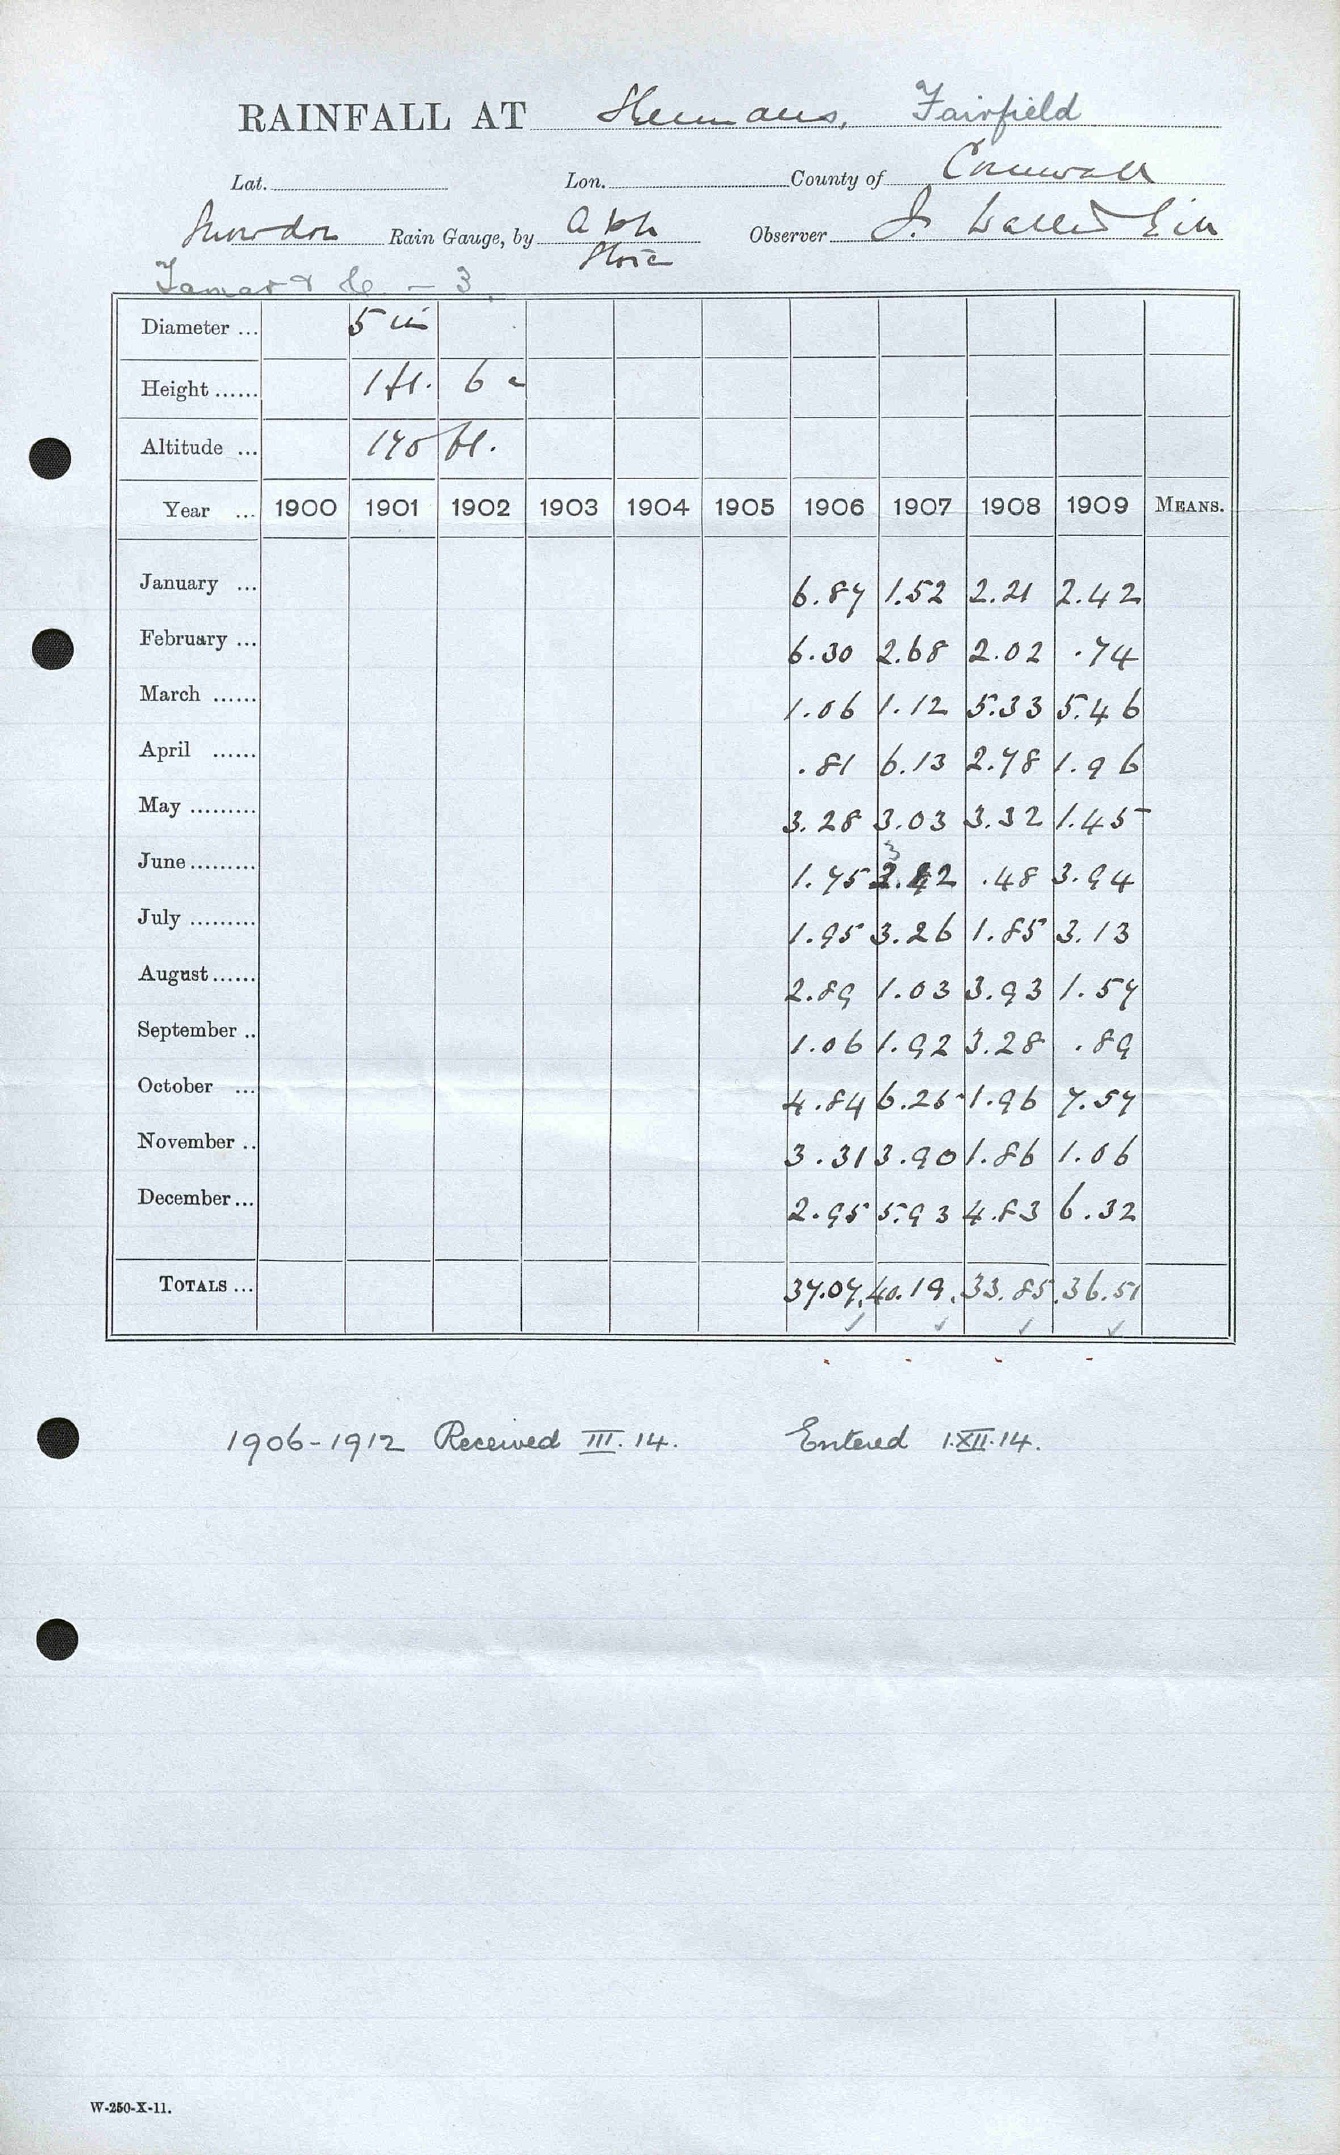 RAINFALL AT Fairfield
Lat. Lon. County of Cornwall
Snowdon Rain Gauge, by Observer J.
Tamar & - 3
Diameter ... 5 in
Height ...... 1 ft. 6
Altitude ... 170 ft.
Year ... 1900 1901 1902 1903 1904 1905 1906 1907 1908 1909 MEANS.
January ... 6.87 1.52 2.21 2.42
February ... 6.30 2.68 2.02 .74
March ...... 1.06 1.12 5.33 5.46
April ...... .81 6.13 2.78 1.96
May ......... 3.28 3.03 3.32 1.45
June ......... 1.75 3.42 .48 3.94
July ......... 1.95 3.26 1.85 3.13
August ...... 2.89 1.03 3.93 1.57
September .. 1.06 1.92 3.28 .89
October ... 4.84 6.25 1.96 7.57
November .. 3.31 3.90 1.86 1.06
December ... 2.95 5.93 4.83 6.32
TOTALS ... 37.07 40.19 33.85 36.51
1906-1912 Received III.14. Entered 1.XII.14.
W-250-X-11.